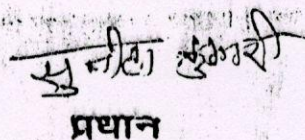 सुनीता कुमारी
प्रधान